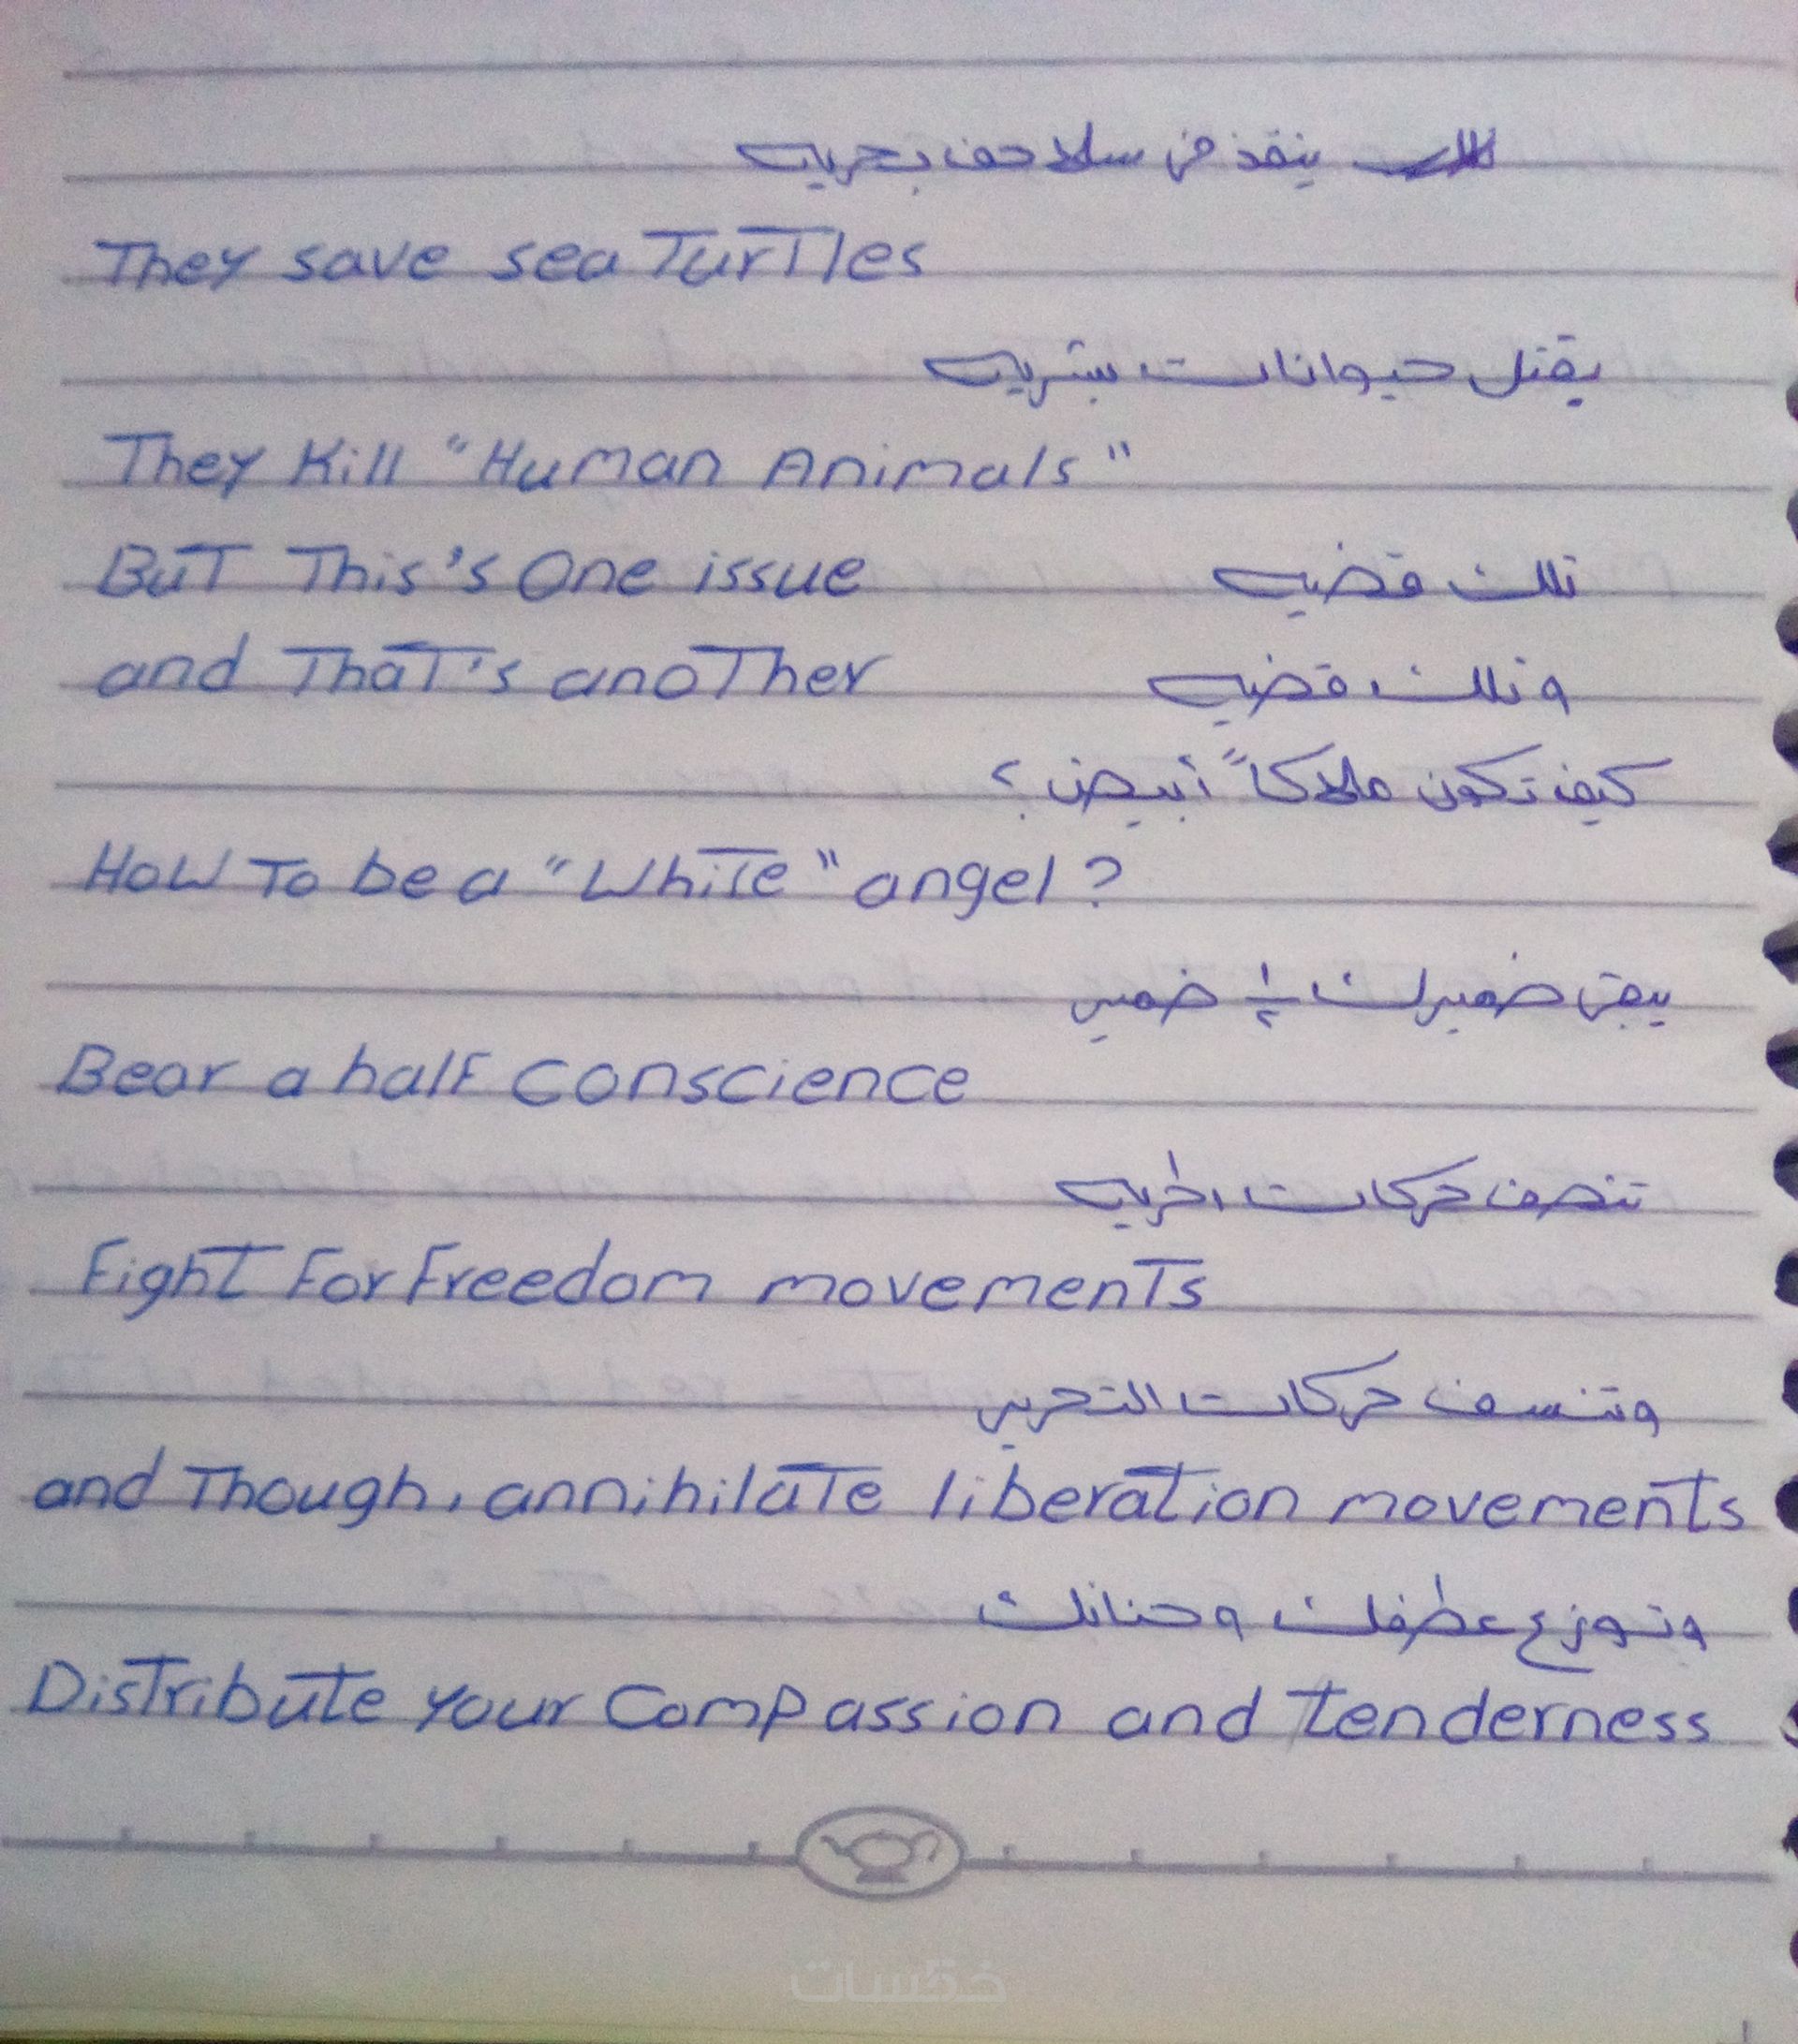 ينقذ في سلاحف بحريه
They save sea Turtles
يقتل حيوانات بشريه
They Kill "Human Animals"
But This's One issue تلك قضيه
and That's another وتلك قضيه
كيف تكون ملاكاً أبيض؟
How To be a "White" angel?
يبقى ضميرك ½ ضمير
Bear a half conscience
تنصف حركات الحريه
Fight For Freedom movements
وتنسف حركات التحرير
and Though, annihilate liberation movements
وتوزع عطفك وحنانك
Distribute your Compassion and tenderness
خمسات